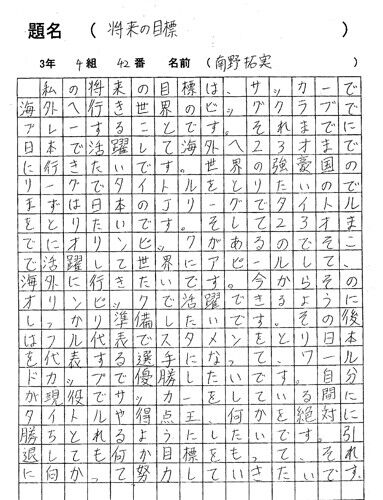 題名 （ 将来の目標 ）
3年 4組 42番 名前 （南野拓実 ）
私の将来の目標は、サッカーで
海外へ行き世界のビッグクラブで
プレーすることです。それまでに
日本で活躍して海外へ23才まで
に行きたいです。世界の強豪国の
リーグでタイトルをとりたいので
まずは日本のJリーグでタイトル
をとりたいです。そして23才ま
でにオリンピックがあるのでそこ
で活躍して世界にアピールして、
海外に行きたいです。今からその
オリンピックで活躍できるように
しっかり準備したいです。その後
はフル代表でスタメンをとり日本
を代表する選手になって、ワール
ドカップで優勝したいです。自分
が現役でサッカーをしている間に
タイトルや得点王、何かを絶対に
勝ちとれるようにしたいです。引
退しても何か目標をもって、それ
に向かって努力していきたいです。